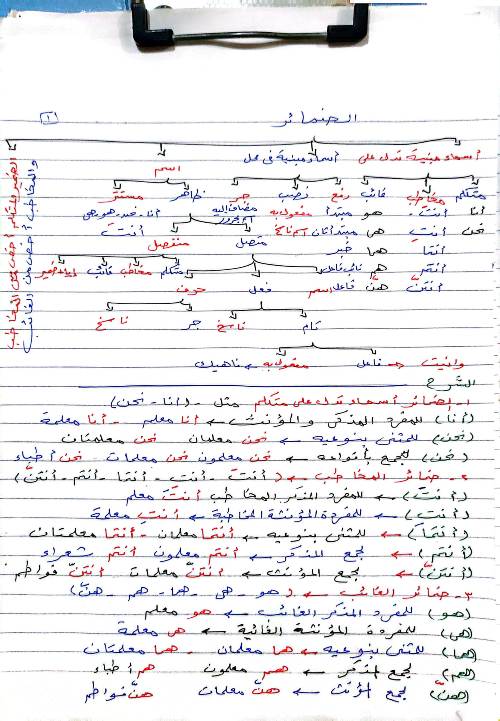 الضمائر
١
أسماء مبنية تدل على أسماء مبنية في محل اسم
متكلم مخاطب غائب رفع نصب جر ظاهر مستتر
أنا أنتَ هو مبتدأ مفعول به مضاف إليه
نحن أنتِ هي اسم ناسخ اسم مجرور
أنتما هما خبر متصل منفصل
أنتم هم نائب فاعل متكلم مخاطب غائب
أنتنَّ هنَّ فاعل اسم فعل حرف
تام ناسخ جر ناسخ
فاعل مفعول به
الضمير المتكلم أخص من المخاطب
والمخاطب أخص من الغائب
الشرح
١- ضمائر أسماء تدل على متكلم مثل (أنا - نحن)
(أنا) للمفرد المذكر والمؤنث ← أنا معلم - أنا معلمة
(نحن) للمثنى بنوعيه ← نحن معلمان نحن معلمتان
(نحن) للجمع بأنواعه ← نحن معلمون نحن معلمات نحن أطباء
٢- ضمائر المخاطب ← (أنتَ - أنتِ - أنتما - أنتم - أنتنَّ)
(أنتَ) ← للمفرد المذكر المخاطب أنتَ معلم
(أنتِ) ← للمفردة المؤنثة المخاطبة ← أنتِ معلمة
(أنتما) ← للمثنى بنوعيه ← أنتما معلمان - أنتما معلمتان
(أنتم) ← لجمع المذكر ← أنتم معلمون أنتم شعراء
(أنتنَّ) ← لجمع المؤنث ← أنتنَّ معلمات أنتنَّ فواطم
٣- ضمائر الغائب ← (هو - هي - هما - هم - هنَّ)
(هو) للمفرد المذكر الغائب ← هو معلم
(هي) للمفردة المؤنثة الغائبة ← هي معلمة
(هما) للمثنى بنوعيه ← هما معلمان - هما معلمتان
(هم) لجمع المذكر ← هم معلمون هم أطباء
(هنَّ) لجمع المؤنث ← هنَّ معلمات هنَّ فواطم